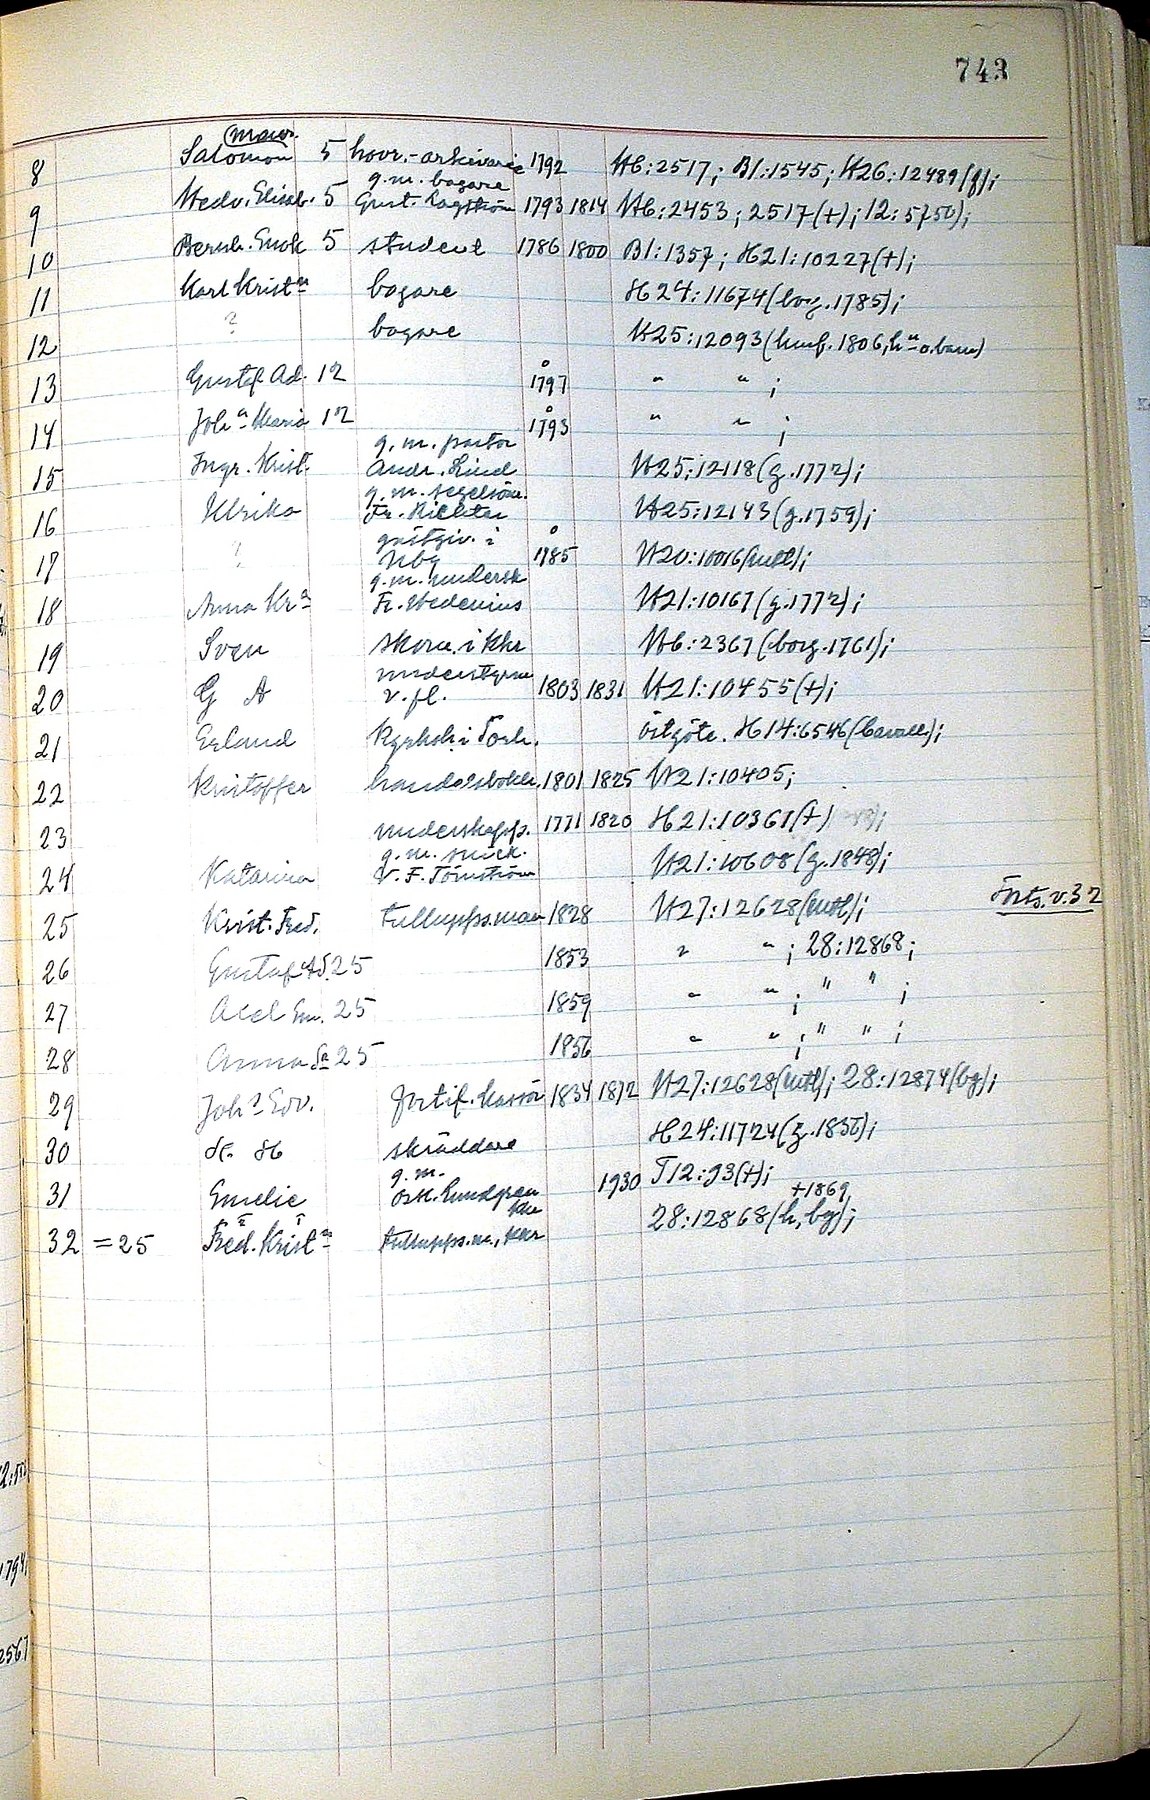 743
8 Salomon (mow. 5 hovr.-arkivarie 1792 H6:2517; Bl:1545; H26:12489(f);
g.m. bagare
9 Hedv. Elisab. 5 Gust. Lagström 1793 1814 H6:2453; 2517(+); 12:5750);
10 Bernh. Enok 5 student 1786 1800 Bl:1357; H21:10227(+);
11 Karl Kristn bagare H24:11674(borg.1785);
12 ? bagare H25:12093(husf.1806, hn o. barn)
13 Gustaf Ad. 12 1797 " " ;
14 Joha Maria 12 1793 " " ;
g.m. pastor
15 Ingr. Krist. Andr. Lind H25:12118(g.1772);
g.m.
16 Ulrika Fr. Richter H25:12143(g.1759);
gästgiv. i
17 ? Nbg 1785 H20:10016(mtl);
g.m.
18 Anna Kra Fr. Hedenius H21:10167(g.1772);
19 Sven skom. i Khr H6:2367(borg.1761);
understyrm
20 G A v. fl. 1803 1831 H21:10455(+);
21 Erland Kyrkoh. i Torh. östgöte. H14:6546(Cavall);
22 Kristoffer handelsbokh. 1801 1825 H21:10405;
23 underskepp. 1771 1820 H21:10361(+) ;
g.m. snick.
24 Katarina V. F. Törnström H21:10608(g.1848);
25 Krist. Fred. tulluppsman 1828 H27:12628(mtl); Forts. v. 32
26 Gustaf Ad. 25 1853 " " ; 28:12868;
27 Axel Em. 25 1859 " " ; " " ;
28 Anna Sa 25 1856 " " ; " " ;
29 John Edv. fortif. kassör 1834 1872 H27:12628(mtl); 28:12874(bg);
30 skräddare H24:11724(g.1836);
g.m.
31 Emelie Osk. Lundgren Khr 1930 T12:93(+);
+1869,
32 =25 Fred. Kristn tulluppsm., Khr 28:12868(h, bg);
2567